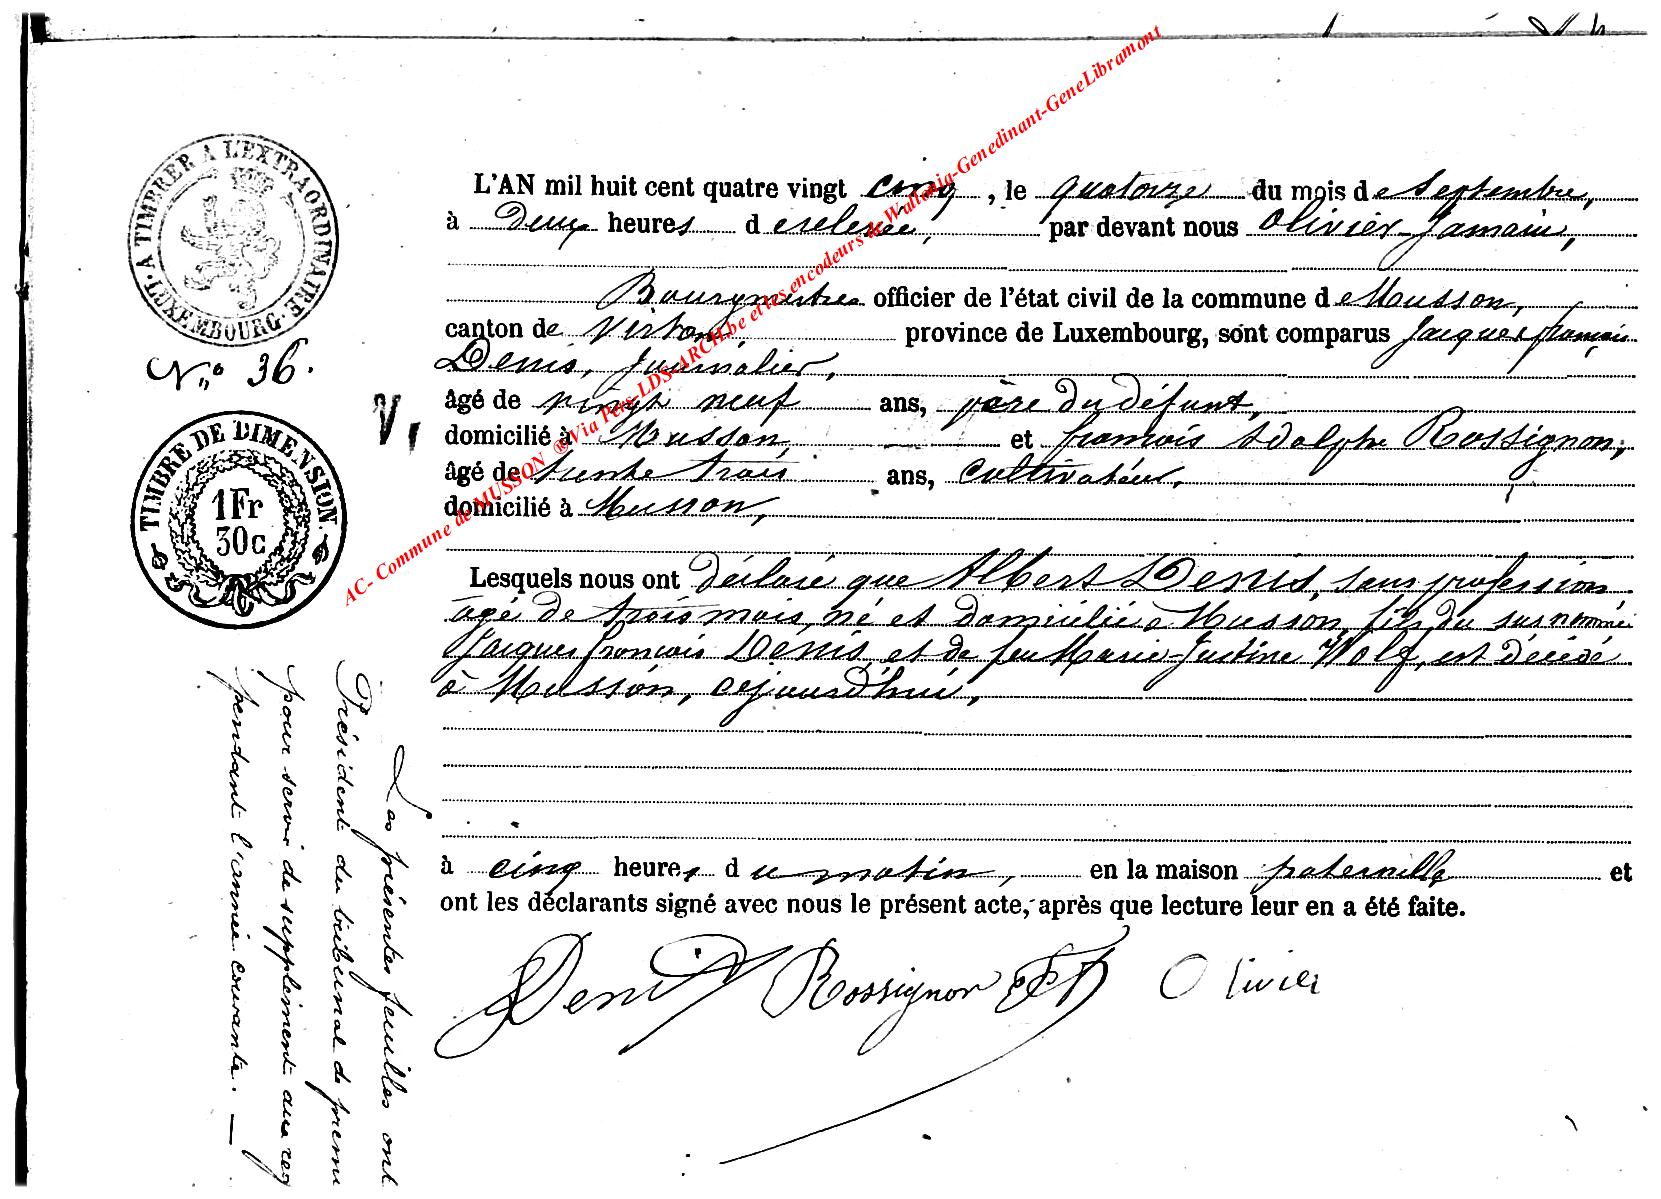 A TIMBRER A L'EXTRAORDINAIRE
LUXEMBOURG
N° 36.
TIMBRE DE DIMENSION.
1 Fr
30 c
V,
L'AN mil huit cent quatre vingt cinq, le quatorze du mois de Septembre,
à deux heures de relevée, par devant nous Olivier Jamain,
Bourgmestre officier de l'état civil de la commune de Musson,
canton de Virton, province de Luxembourg, sont comparus Jacques françois
Denis, Journalier,
âgé de vingt neuf ans, père du défunt,
domicilié à Musson, et françois Adolphe Rossignon,
âgé de trente trois ans, Cultivateur,
domicilié à Musson,
Lesquels nous ont déclaré que Albert Denis, sans profession
agé de trois mois, né et domicilié à Musson, fils du susnommé
Jacques françois Denis, et de feu Marie-Justine Wolf, est décédé
à Musson, cejourd'hui,
à cinq heures du matin, en la maison paternelle et
ont les déclarants signé avec nous le présent acte, après que lecture leur en a été faite.
Denis Rossignon Olivier
Les présentes feuilles ont
Président du tribunal de premi
pour servir de supplément aux reg
pendant l'année courante. —
AC- Commune de MUSSON ® Via Pers-LDS-ARCH.be et les encodeurs de Wallonia-Genedinant-GeneLibramont